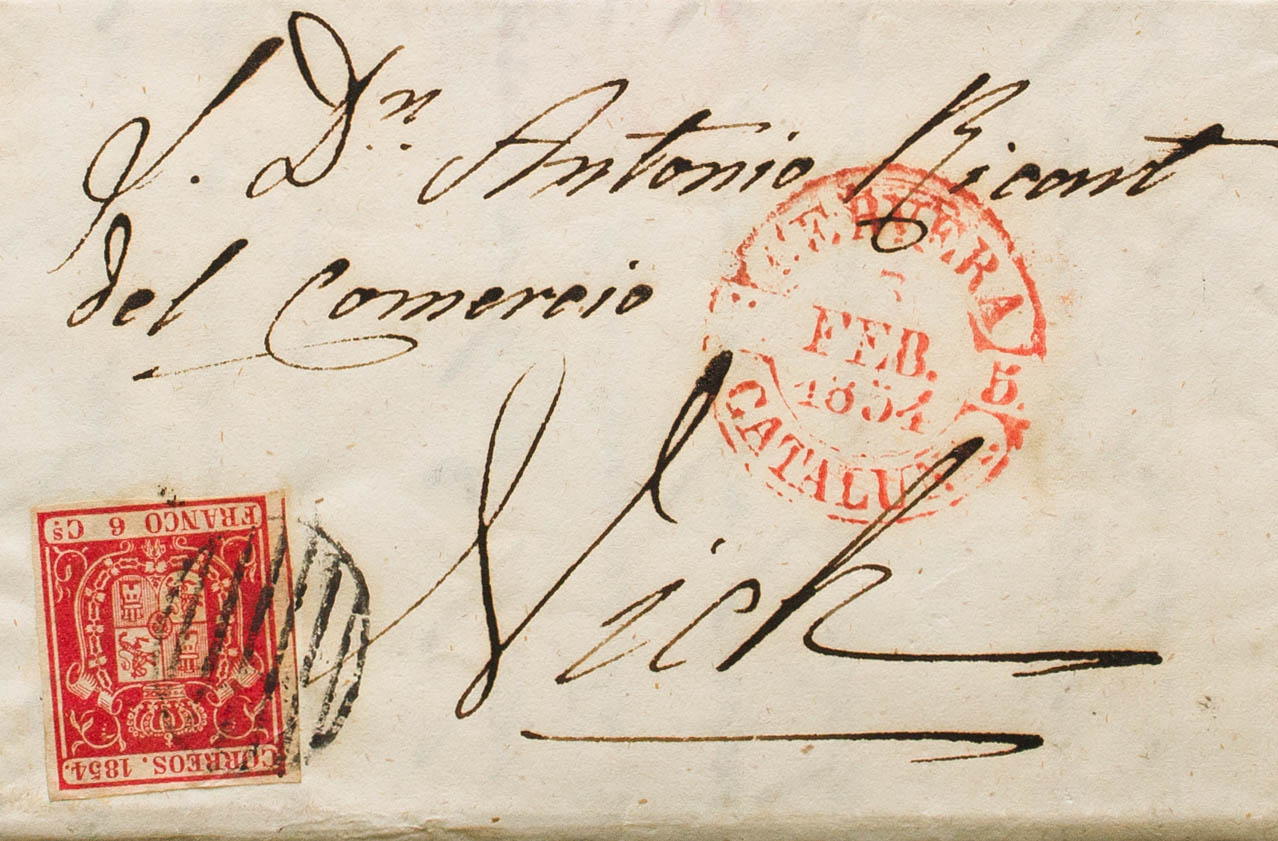 S. Dn. Antonio Ricart
del Comercio
Vich
CERVERA
FEB.
1854
5.
CATALUÑA
FRANCO 6 Cs
CORREOS. 1854.